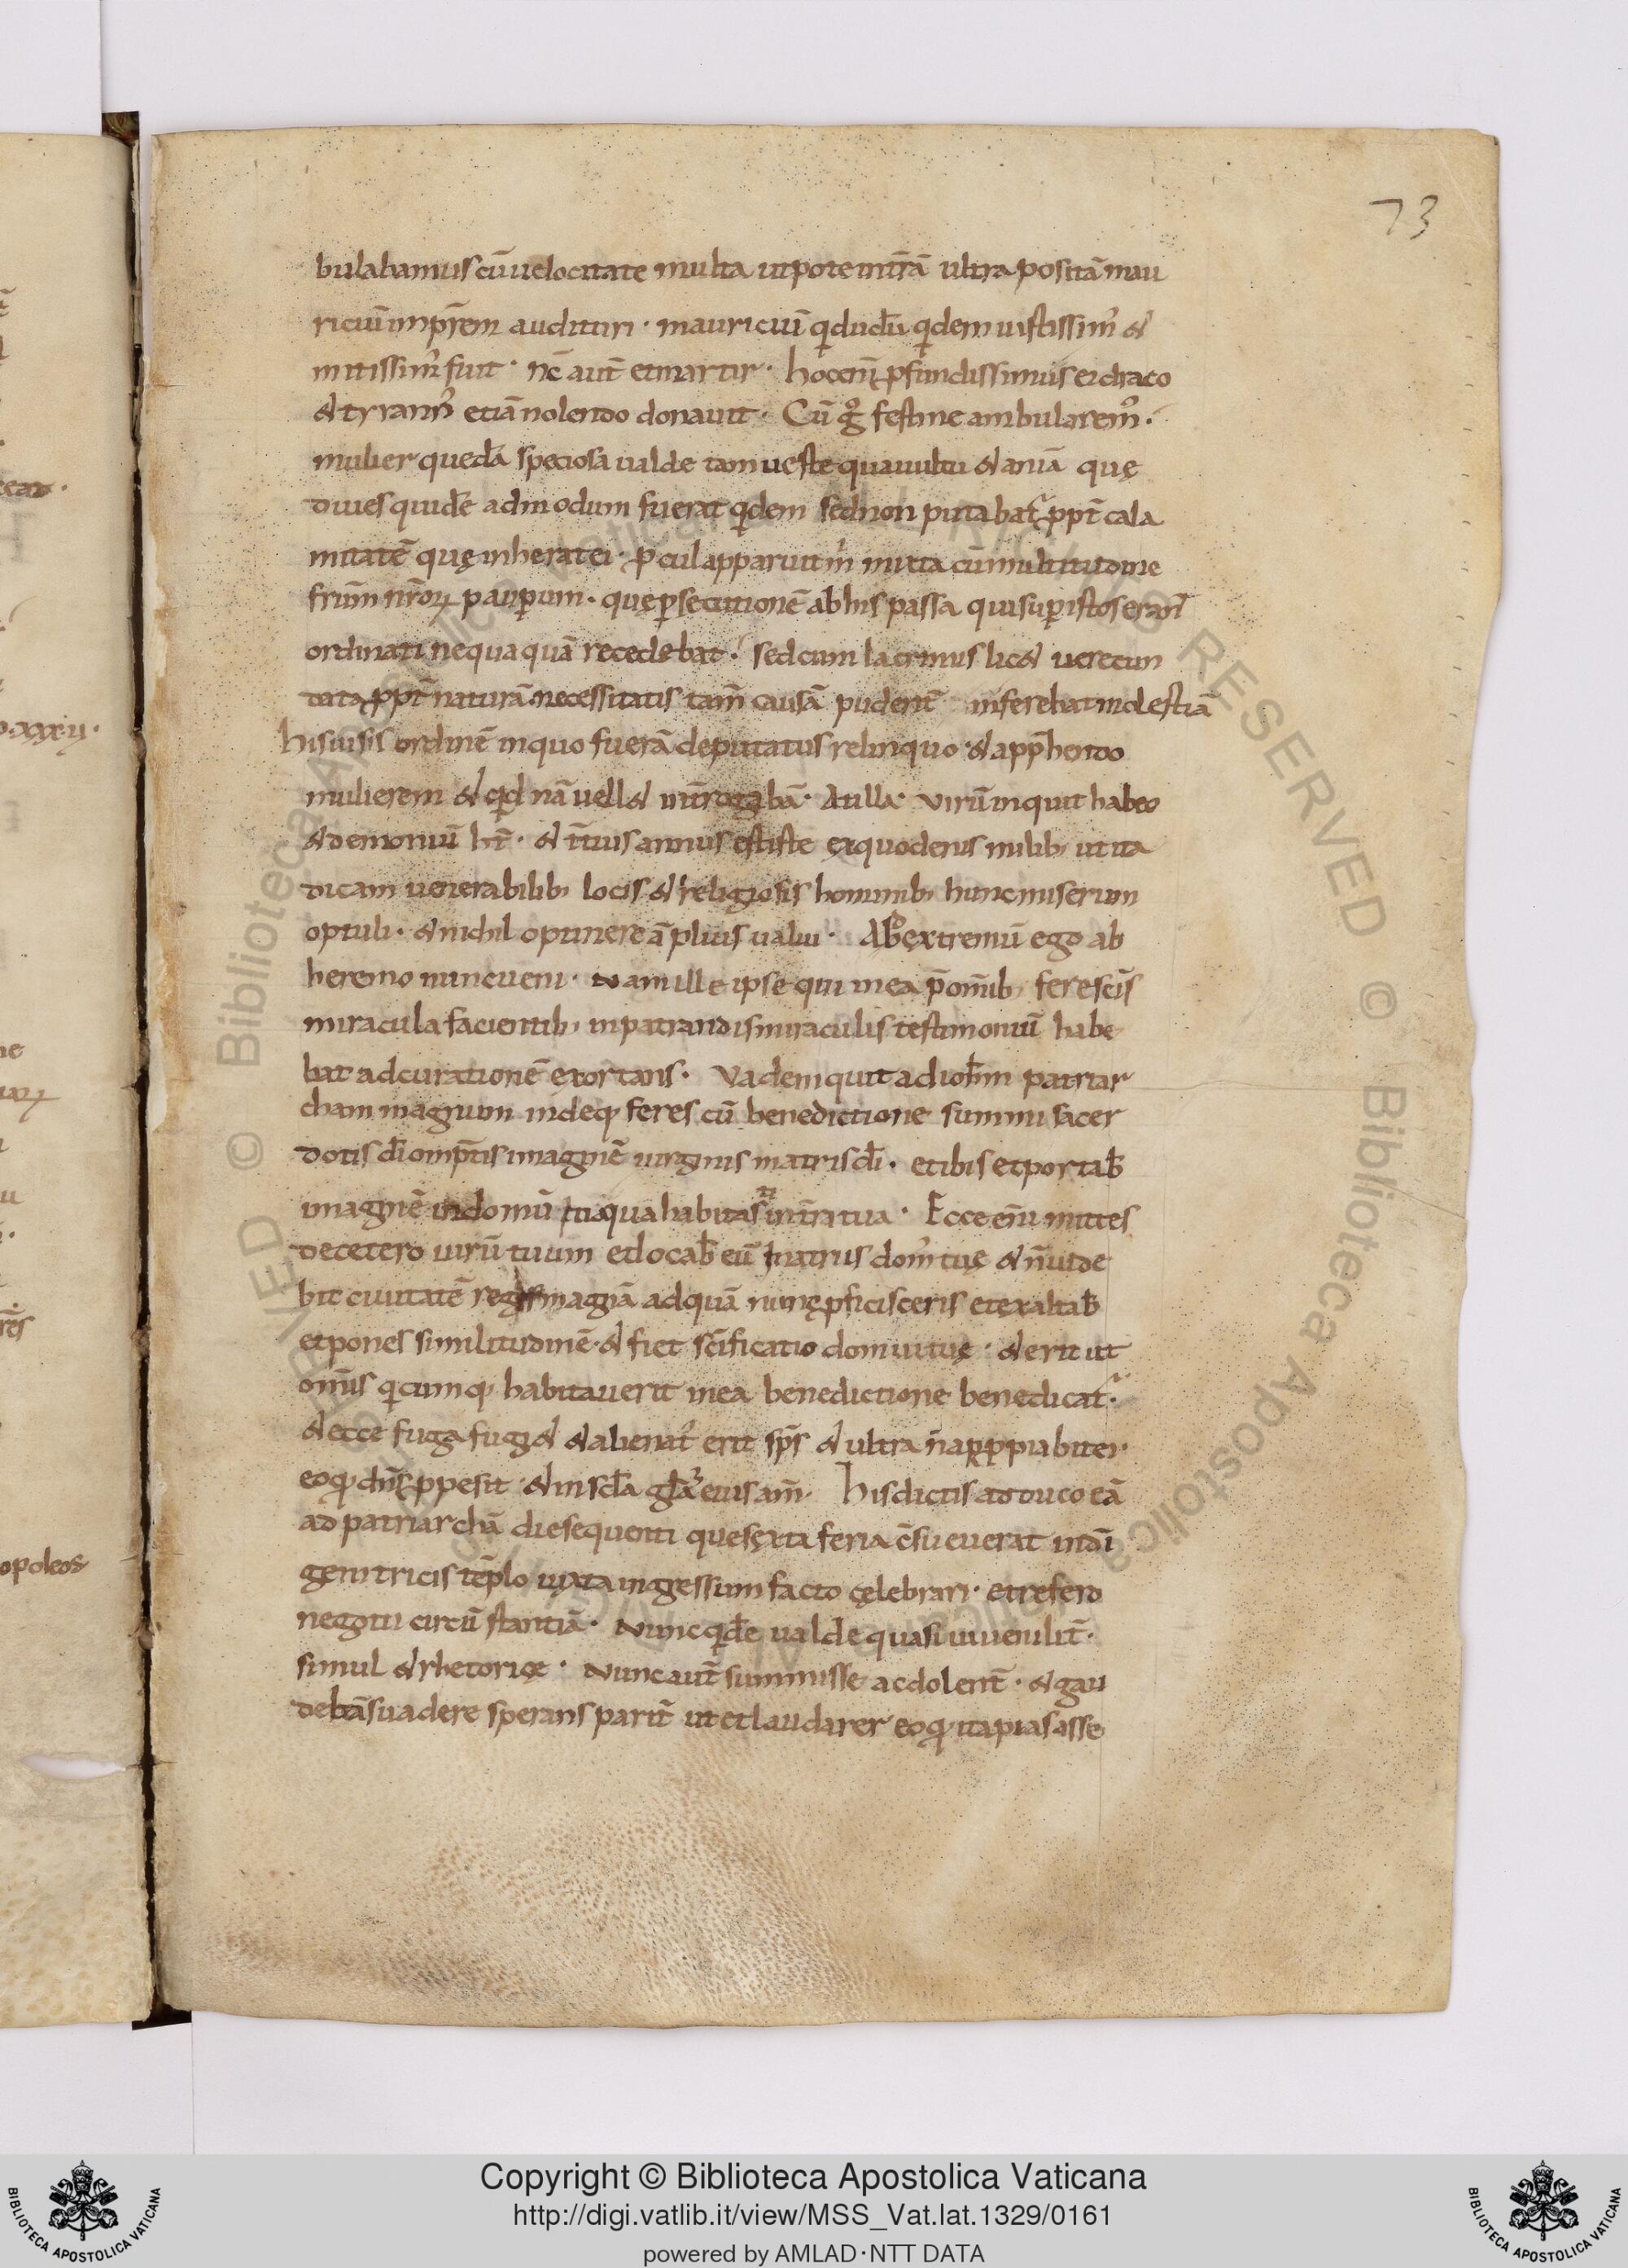 73
bulabamus cū uelocitate multa utpote in tr̄ā ultra positā mau
riciū imp̄rem audituri · mauriciū qi dudū qidem iustissim' &
mitissim' fuit · nc̄ aut̄ et martir · hoc eni p̄fundissimus ei draco
& tyrann' etiā nolendo donauit · Cū go festine ambularem' ·
mulier quedā speciosa ualde tam ueste qua uultu & aniā quę
diues quidē admodum fuerat qidem sed non putabat̄ ppt̄ cala
mitatē quę inherat ei · pcul apparuit in uia cū multitudine
frūm nr̄oꝝ pauperum · quę psecutionē ab his passa qui sup istos erant
ordinati nequaquā recedebat · sed cum lacrimis lic& uerecun
data ppt̄ naturā necessitatis tam̄ causā pudent̄ inferebat molestiā
his uisis ordinē in quo fuerā deputatus relinquo · & app̄hendo
mulierem & qid nā uell& int̄rogabā · At illa · Virū inquit habeo
& demoniū ht̄ · & t̄tius annus est iste ex quo denis milib; ut ita
dicam uenerabilib; locis & religiosis hominib; hunc miserum
optuli · & nichil optinere āplius ualui · Ab extremū ego ab
heremo nunc ueni · Nam ille ipse qui in ea p̄ om̄ib; fere sc̄is
miracula facientib; in patrandis miraculis testimoniū habe
bat ad curationē exortans · Vade inquit ad ioh̄m patriar
cham magnum indeq; feres cū benedictione summi sacer
dotis dī omp̄tis imaginē uirginis matris dī · et ibis et portab̄
imaginē in domū in qua habitas in tr̄a tua · Ecce eni mittes
de cetero uirū tuum et locab̄ eū in atriis dom' tuę & n̄ uide
bit ciuitatē regis magnā ad quā nunc pficisceris et exaltab̄
et pones similitudinē · & fiet sc̄ificatio domui tuę · & erit ut
om̄is qicumq; habitauerit in ea benedictione benedicat̄ ·
& ecce fuga fugi& & alienat' erit sp̄s & ultra n̄ appropiabit ei ·
eoq; dn̄s ppe sit · & in scl̄a gl̄a eius am̄ · his dictis adduco eā
ad patriarchā die sequenti que sexta feria c̄sueuerat in dī
genitricis tēplo iuxta ingressum facto celebrari · et refero
negotii circū stantiā · Nunc qidē ualde quasi iuuenilit̄ ·
simul & rhetorice · Nunc aut̄ summisse ac dolent̄ · & gau
debā suadere sperans parit̄ ut et laudarer eoq; ita pias asse
Copyright © Biblioteca Apostolica Vaticana
http://digi.vatlib.it/view/MSS_Vat.lat.1329/0161
powered by AMLAD·NTT DATA